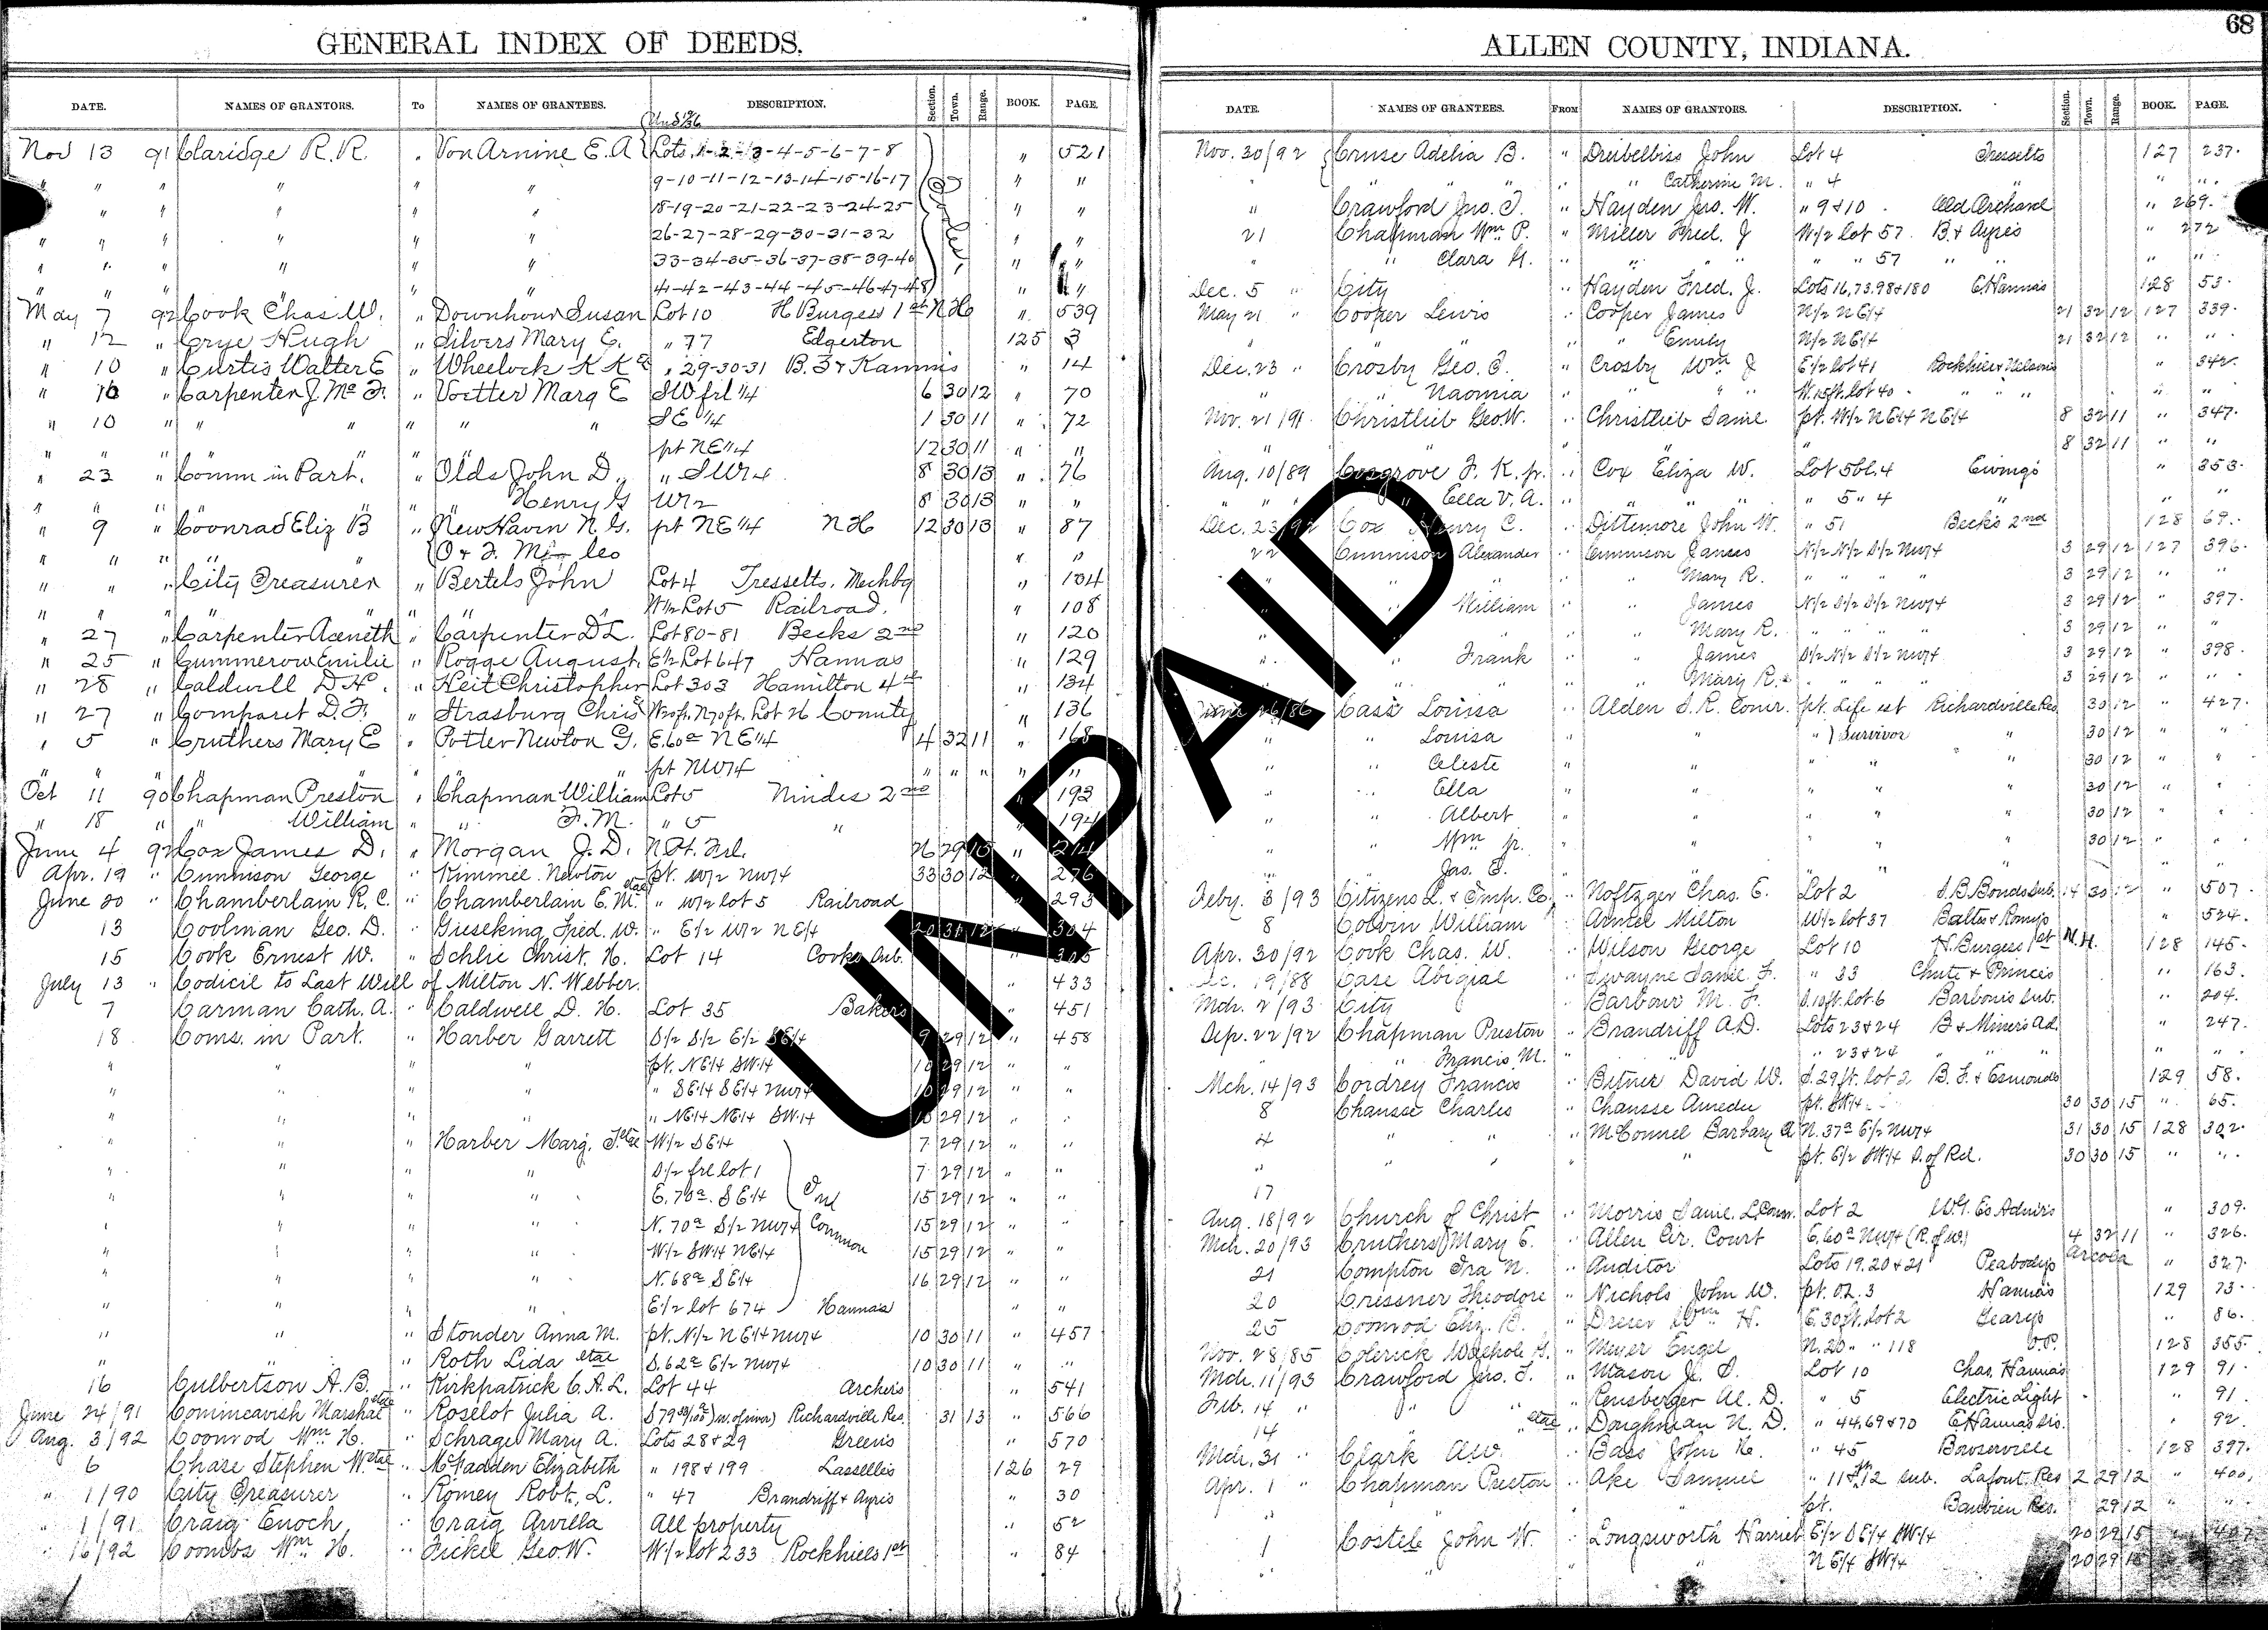 68
GENERAL INDEX OF DEEDS.
DATE. NAMES OF GRANTORS. To NAMES OF GRANTEES. DESCRIPTION. Section. Town. Range. BOOK. PAGE.
Nov 13 91 Claridge R. R. " Von Arnine E. A Lots 1-2-3-4-5-6-7-8 " 521
" " " " " 9-10-11-12-13-14-15-16-17 " "
" " " " " 18-19-20-21-22-23-24-25 " "
" " " " " 26-27-28-29-30-31-32 " "
" " " " " 33-34-35-36-37-38-39-40 " "
" " " " " 41-42-43-44-45-46-47-48 " "
May 7 92 Cook Chas. W. " Downhour Susan Lot 10 H Burgess 1st N H " 539
" 12 " Crye Hugh " Silvers Mary E. " 77 Edgerton 125 3
" 10 " Curtis Walter E " Wheelock K K " 29-30-31 B. 3 & Kamms " 14
" 10 " Carpenter J. Mc F. " Voetter Marg E SW frl 1/4 6 30 12 " 70
" 10 " " " " " SE 1/4 1 30 11 " 72
" " " " " pt NE 1/4 12 30 11 " "
" 23 " Comm in Part. " Olds John D. " SW 1/4 8 30 13 " 76
" " " " " Henry G W 1/2 8 30 13 " "
" 9 " Coonrad Eliz B " New Haven N. G. pt NE 1/4 N H 12 30 13 " 87
" " " " " O & F. Mfg Co " "
" " " City Treasurer " Bertels John Lot 4 Tresselts. Mechbg " 104
" " " " " " W 1/2 Lot 5 Railroad. " 108
" 27 " Carpenter Aceneth " Carpenter D L. Lot 80-81 Becks 2nd " 120
" 25 " Gummerow Emilie " Rogge August. E 1/2 Lot 647 Hannas " 129
" 28 " Caldwell D. H. " Heit Christopher Lot 303 Hamilton 4th " 134
" 27 " Comparet D. F. " Strasburg Chris W20ft. N70ft. Lot 26 County " 136
" 5 " Cruthers Mary E " Potter Newton G. E. 60a NE 1/4 4 32 11 " 168
" " " " " " pt NW 1/4 " " " " "
Oct 11 90 Chapman Preston " Chapman William Lot 5 Nindes 2nd " 193
" 18 " " William " " F. M. " 5 " 194
June 4 92 Cox James D. " Morgan J. D. N Pt. Frl. 26 29 15 " 214
Apr. 19 " Cunnison George " Kimmel Newton pt. W 1/2 NW 1/4 33 30 12 " 276
June 20 " Chamberlain R. C. " Chamberlain E. M. etal " W 1/2 lot 5 Railroad " 293
13 Coolman Geo. D. " Gieseking Fred. W. " E 1/2 W 1/2 NE 1/4 20 31 12 " 304
15 Cook Ernest W. " Schlie Christ. H. Lot 14 Cooks Sub. " 305
July 13 " Codicil to Last Will of Milton N. Webber. " 433
7 Carman Cath. A. " Caldwell D. H. Lot 35 Bakers " 451
18 Coms. in Part. " Harber Garrett S 1/2 S 1/2 E 1/2 SE 1/4 9 29 12 " 458
" " " pt. NE 1/4 SW 1/4 10 29 12 " "
" " " " SE 1/4 SE 1/4 NW 1/4 10 29 12 " "
" " " " NE 1/4 NE 1/4 SW 1/4 15 29 12 " "
" " " Harber Marg. J. etal W 1/2 SE 1/4 7 29 12 " "
" " " " S 1/2 frl lot 1 7 29 12 " "
" " " " E. 70a. SE 1/4 Ind 15 29 12 " "
" " " " N. 70a S 1/2 NW 1/4 Common 15 29 12 " "
" " " " W 1/2 SW 1/4 NE 1/4 15 29 12 " "
" " " " N. 68a SE 1/4 16 29 12 " "
" " " " E 1/2 lot 674 Hanna's " "
" " " Stonder Anna M. pt. N 1/2 NE 1/4 NW 1/4 10 30 11 " 457
" " Roth Lida etal S. 62a E 1/2 NW 1/4 10 30 11 " "
16 Culbertson A. B. " Kirkpatrick C. A. L. Lot 44 Archers " 541
June 24/91 Comincavish Marshal etal " Roselot Julia A. Richardville Res. 31 13 " 566
Aug. 3/92 Coonrod Wm H. " Schrage Mary A. Lots 28 & 29 Greens " 570
6 Chase Stephen W etal " McFadden Elizabeth " 198 & 199 Lasselles 126 29
" 1/90 City Treasurer " Romey Robt. L. " 47 Brandriff & Ayres " 30
" 1/91 Craig Enoch " Craig Arvilla All property " 52
" 16/92 Coombs Wm H. " Fickel Geo. W. W 1/2 lot 233 Rockhills 1st " 84
ALLEN COUNTY, INDIANA.
DATE. NAMES OF GRANTEES. FROM NAMES OF GRANTORS. DESCRIPTION. Section. Town. Range. BOOK. PAGE.
Nov. 30/92 Cruse Adelia B. " Dreibelbiss John Lot 4 Tresselts 127 237.
" " " " Catherine M. " 4 " " "
" Crawford Jno. T. " Hayden Jno. W. " 9 & 10 Old Orchard " 269.
21 Chapman Wm P. " Miller Fred. J W 1/2 lot 57 B. & Ayres " 272
" " Clara H. " " " " 57 " " " "
Dec. 5 " City " Hayden Fred. J. Lots 16, 73, 98 & 180 E. Hannas 128 53.
May 21 " Cooper Lewis " Cooper James N 1/2 NE 1/4 21 32 12 127 339.
" " " " Emily N 1/2 NE 1/4 21 32 12 " "
Dec. 23 " Crosby Geo. E. " Crosby Wm J E 1/2 lot 41 Rockhill & Nelsons " 342.
" " Naomia " " " W. 15 ft. lot 40 " " " "
Nov. 21/91 Christlieb Geo. W. " Christlieb Saml. pt. W 1/2 NE 1/4 NE 1/4 8 32 11 " 347.
" " " " " 8 32 11 " "
Aug. 10/89 Cosgrove F. K. jr. " Cox Eliza W. Lot 5 bl. 4 Ewings " 353.
" " " Ella V. A. " " " " 5 " 4 " " "
Dec. 23/92 Cox Henry C. " Dittemore John W. " 51 Becks 2nd 128 69.
22 Cunnison Alexander " Cunnison James N 1/2 N 1/2 S 1/2 NW 1/4 3 29 12 127 396.
" " " " Mary R. " " " " 3 29 12 " "
" " William " " James N 1/2 S 1/2 S 1/2 NW 1/4 3 29 12 " 397.
" " " " Mary R. " " " " 3 29 12 " "
" " Frank " " James S 1/2 N 1/2 S 1/2 NW 1/4 3 29 12 " 398.
" " " " Mary R. " " " " 3 29 12 " "
June 26/86 Cass Louisa Alden S. R. Comr. pt. Life est Richardville Res 30 12 " 427.
" " Louisa " " " Survivor " 30 12 " "
" " Celeste " " " " " 30 12 " "
" " Ella " " " " 30 12 " "
" " Albert " " " " 30 12 " "
" " Wm jr. " " " " 30 12 " "
" " Jas. E. " " " " " "
Feby. 3/93 Citizens L. & Imp. Co. " Noftzger Chas. E. Lot 2 S. B. Bonds Sub. 14 30 12 " 507
8 Colvin William " Armel Milton W 1/2 lot 37 Baltes & Romys " 524.
Apr. 30/92 Cook Chas. W. " Wilson George Lot 10 H. Burgess 1st N. H. 128 145.
Dec. 19/88 Case Abigial " Swayne Saml. F. " 33 Chute & Princes " 163.
Mch. 2/93 City " Barbour M. F. S. 10 ft. lot 6 Barbour's Sub. " 204.
Sep. 22/92 Chapman Preston " Brandriff A. D. Lots 23 & 24 B. & Miners Ad. " 247.
" " Francis M. " " 23 & 24 " " " "
Mch. 14/93 Cordrey Francis " Bitner David W. S. 29 ft. lot 2 B. F. & Esmonds 129 58.
8 Chausse Charles " Chausse Amedu pt. SW 1/4 30 30 15 " 65.
4 " " " McConnel Barbary A N. 37a E 1/2 NW 1/4 31 30 15 128 302.
" " " " " pt. E 1/2 SW 1/4 S. of Rd. 30 30 15 " "
17
Aug. 18/92 Church of Christ " Morris Saml. L. Comr. Lot 2 W. T. Co Admrs " 309.
Mch. 20/93 Cruthers Mary E. " Allen Cir. Court E. 60a NW 1/4 (R. of W.) 4 32 11 " 326.
21 Compton Ira N. " Auditor Lots 19, 20 & 21 Peabodys Arcola " 327.
20 Crissner Theodore " Nichols John W. pt. O. L. 3 Hannas 129 73.
25 Coonrod Eliz. B. " Dreser Wm H. E. 30 ft. lot 2 Gearys " 86.
Nov. 28/85 Colerick Walpole G. " Meyer Engel N. 20 " " 118 O. P. 128 355.
Mch. 11/93 Crawford Jno. T. " Mason J. D. Lot 10 Chas. Hannas 129 91.
Feb. 14 " " " " Rensberger Al. D. " 5 Electric Light " 91.
14 " " etal " Doughman N. D. " 44, 69 & 70 E. Hannas Sub. " 92.
Mch. 31 " Clark A. W. " Bass John H. " 45 Bowserville 128 397.
Apr. 1 " Chapman Preston " Ake Samuel " 11 & 12 Sub. Lafont. Res 2 29 12 " 400.
" " pt. Barbien Res. 29 12 " "
1 Costele John W. " Longsworth Harriet E 1/2 SE 1/4 SW 1/4 20 29 15 " 407
" " " NE 1/4 SW 1/4 20 29 15
UNPAID